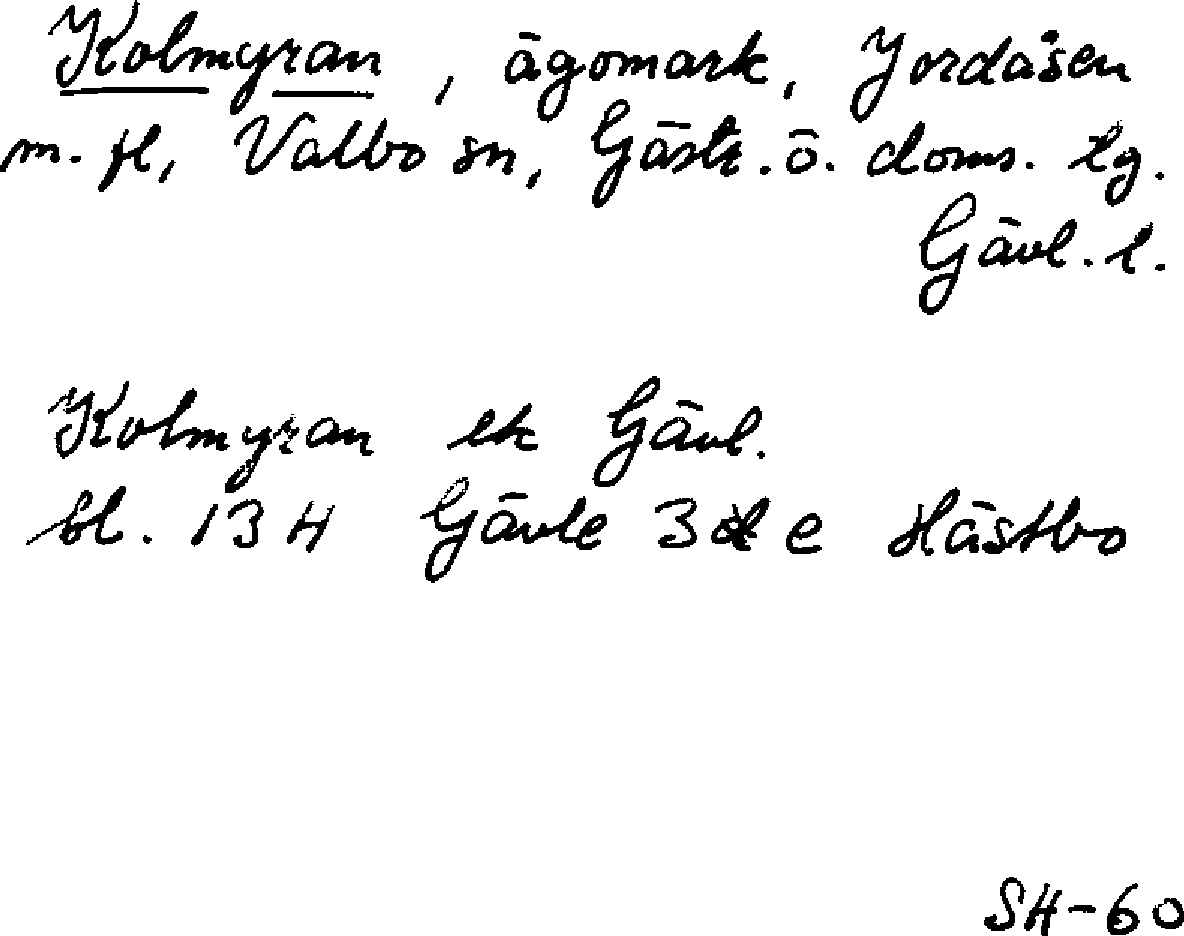 Kolmyran, ägomark, Jordåsen
m. fl, Valbo sn, Gästr. ö. doms. lg.
Gävl. l.
Kolmyran ek Gävl.
bl. 134 Gävle 3 d e Hästbo
SH-60